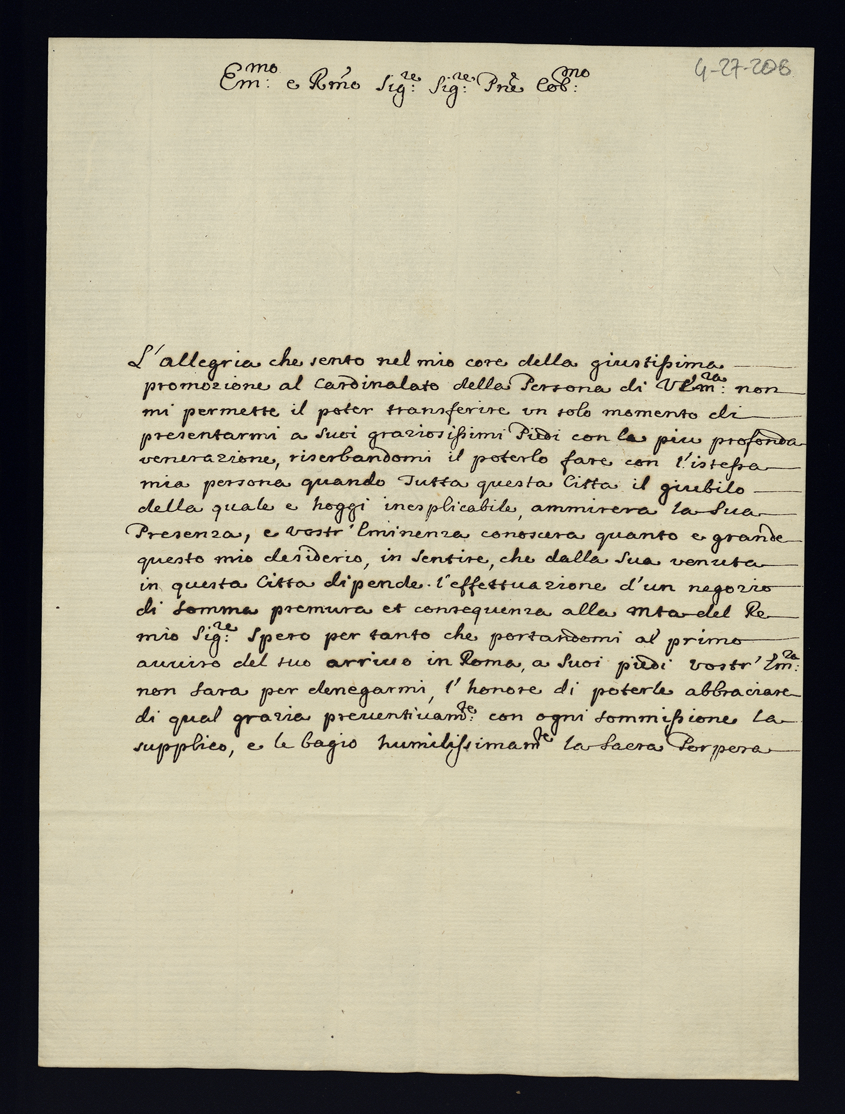 4-27-206
Em:mo e Rm̃o Sig:re Sig:re Prñe Cob:mo
L'allegria che sento nel mio core della giustissima
promozione al Cardinalato della Persona di VEm:za non
mi permette il poter transferire un solo momento di
presentarmi a suoi graziosissimi Piedi con la piu profonda
venerazione, riserbandomi il poterlo fare con l'istessa
mia persona quando Tutta questa Citta il giubilo
della quale e hoggi inesplicabile, ammirera la Sua
Presenza, e Vostr'Eminenza conoscera quanto e grande
questo mio desiderio, in sentire, che dalla Sua venuta
in questa Citta dipende l'effettuazione d'un negozio
di somma premura et consequenza alla Mta del Re
mio Sig:re Spero per tanto che portandomi al primo
avviso del suo arrivo in Roma, a Suoi piedi Vostr'Em:za
non sara per denegarmi, l'honore di poterle abbraciare
di qual grazia preventivam:te con ogni sommissione la
supplico, e le bagio humilissimam:te la Sacra Porpora